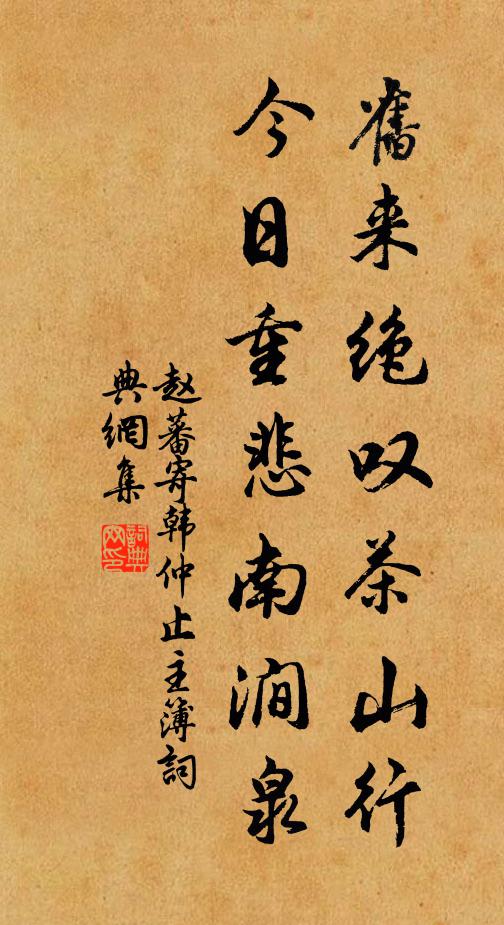 舊来绝叹茶山行
今日重悲南涧泉
赵蕃寄韩仲止主簿詞
典網集
詞典网印